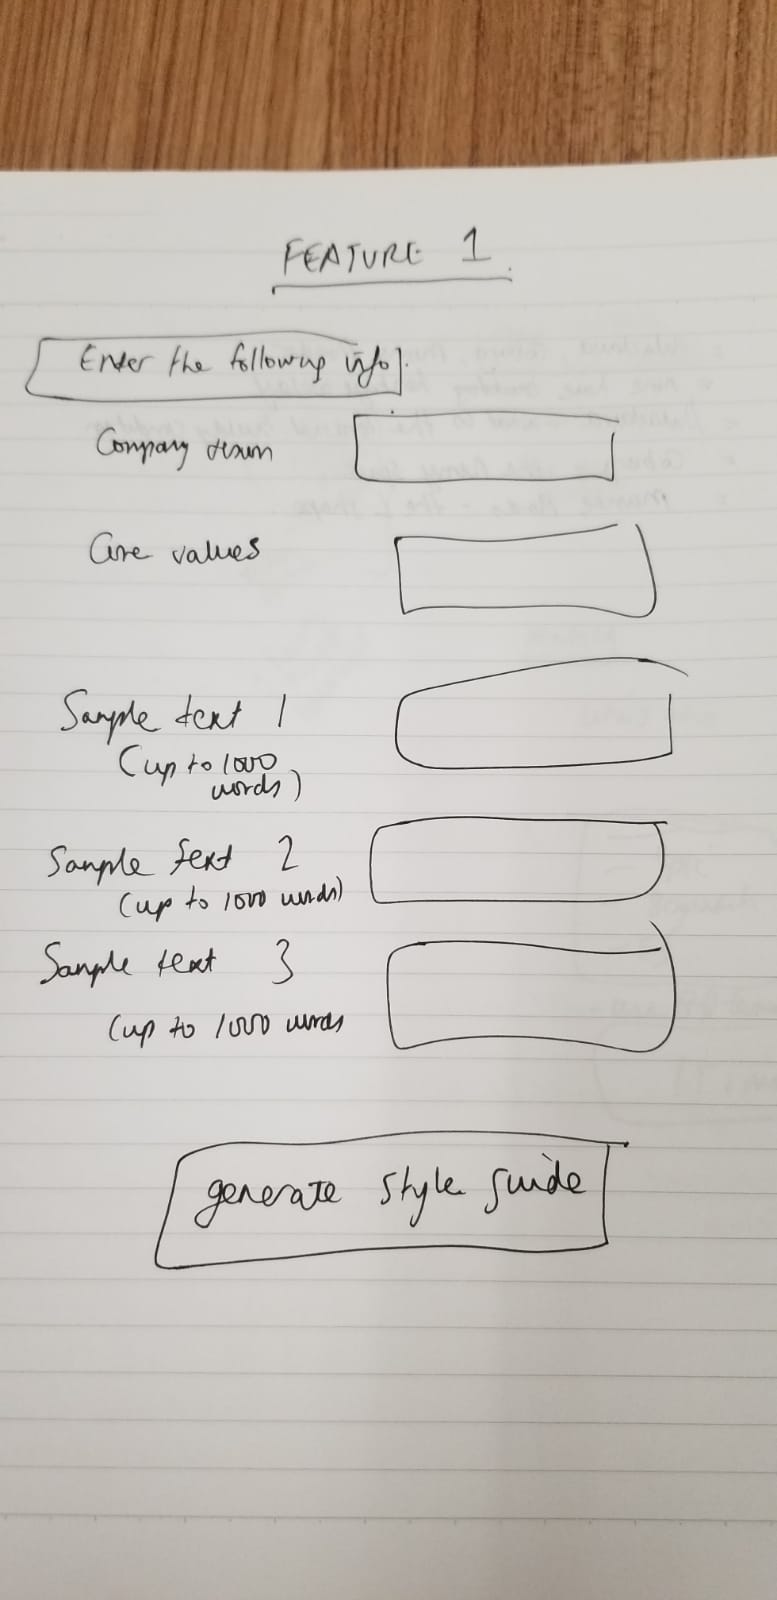 FEATURE 1
Enter the following info:
Company
Core values
Sample text 1
(up to 1000
words)
Sample text 2
(up to 1000 words)
Sample text 3
(up to 1000 words
generate style guide